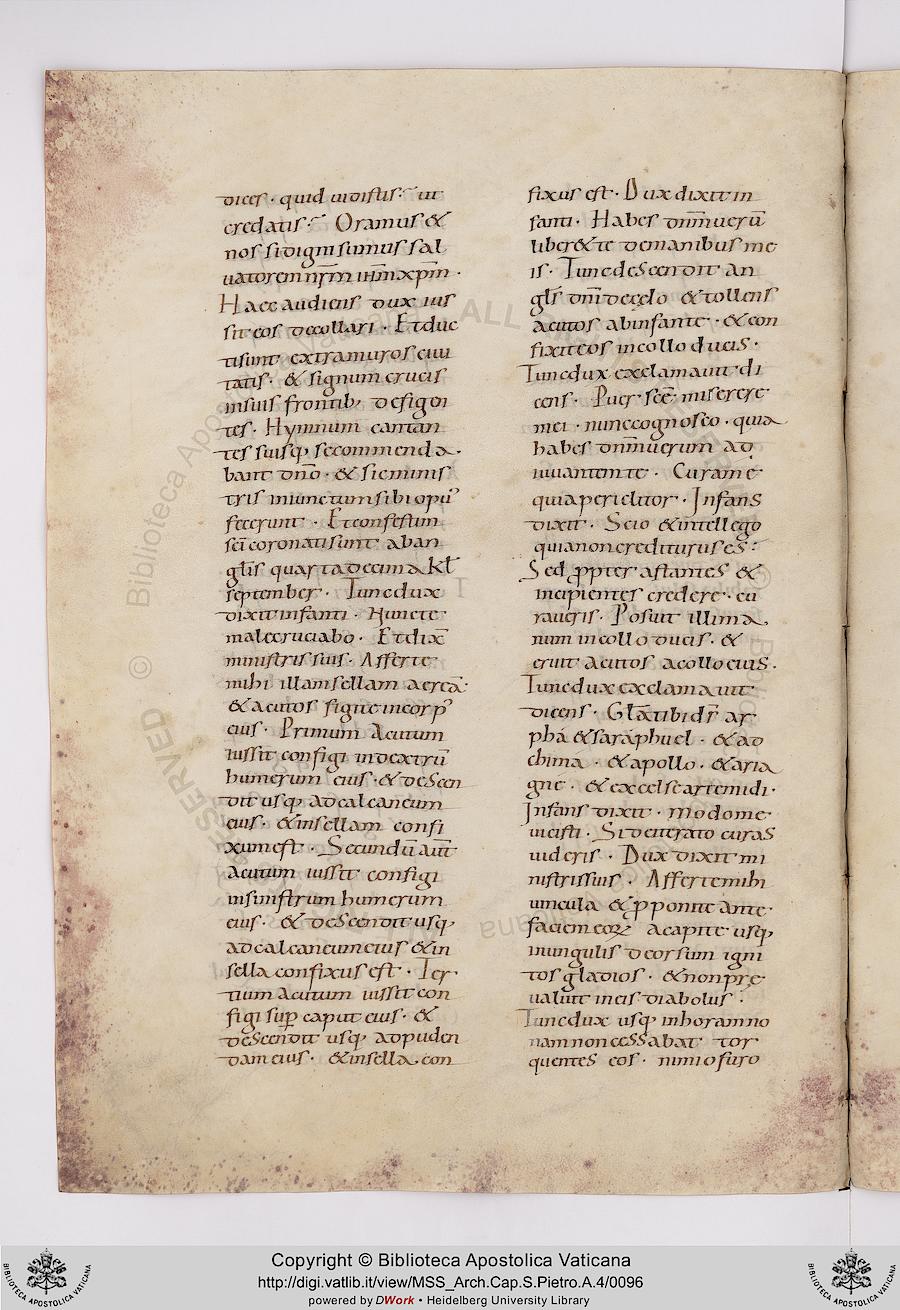 dices · quid uidistis · ut
credatis · Oramus &
nos si digni sumus sal
uatorem nr̄m ih̄m xp̄m ·
Haec audiens dux ius
sit eos decollari · Et duc
ti sunt extra muros ciui
tatis · & signum crucis
in suis frontib; desigen
tes · Hymnum cantan
tes suisq; se commenda
bant dn̄o · & sic minis
tris iniunctum sibi opus
fecerunt · Et confestim
sc̄i coronati sunt ab an
glīs quarta decima Kl̄
september · Tunc dux
dixit infanti · Nunc te
male cruciabo · Et dix̄
ministris suis · Afferte
mihi illam sellam aereā
& acutos figite in corp'
eius · Primum Acutum
iussit configi in dextrū
humerum eius · & descen
dit usq; ad calcaneum
eius · & in sellam confi
xum est · Secundū aut̄
acutum iussit configi
in sinistrum humerum
eius · & descendit usq;
ad calcaneum eius & in
sella confixus est · Ter
tium Acutum iussit con
figi sup̄ caput eius · &
descendit usq; ad puden
dam eius · & in sella con
fixus est · Dux dixit in
fanti · Habes dn̄m uerū
liber& te de manibus me
is · Tunc descendit an
gl̄s dn̄i de cęlo & tollens
acutos ab infante · & con
fixit eos in collo ducis ·
Tunc dux exclamauit di
cens · Puer sc̄e miserere
mei · nunc cognosco · quia
habes dn̄m uerum ad
iuuantem te · Cura me
quia periclitor · Infans
dixit · Scio & intellego
quia non crediturus es ·
Sed ꝓpter astantes &
incipientes credere · cu
raueris · Posuit ille ma
num in collo ducis · &
eruit acutos a collo eius ·
Tunc dux exclamauit
dicens · Glā tibi dr̄ ar
pha & saraphuel · & ad
chima · & apollo · & aria
gne · & excelse artemidi ·
Infans dixit · modo me
uicisti · Si de cetero curas
uideris · Dux dixit mi
nistris suis · Afferte mihi
uincula & ꝓponite ante
faciem eorꝝ a capite usq;
in ungulis deorsum igni
tos gladios · & non prę
ualuit in eis diabolus ·
Tunc dux usq; in horam no
nam non cessabat tor
quentes eos · nimio furo
Copyright © Biblioteca Apostolica Vaticana
http://digi.vatlib.it/view/MSS_Arch.Cap.S.Pietro.A.4/0096
powered by DWork • Heidelberg University Library